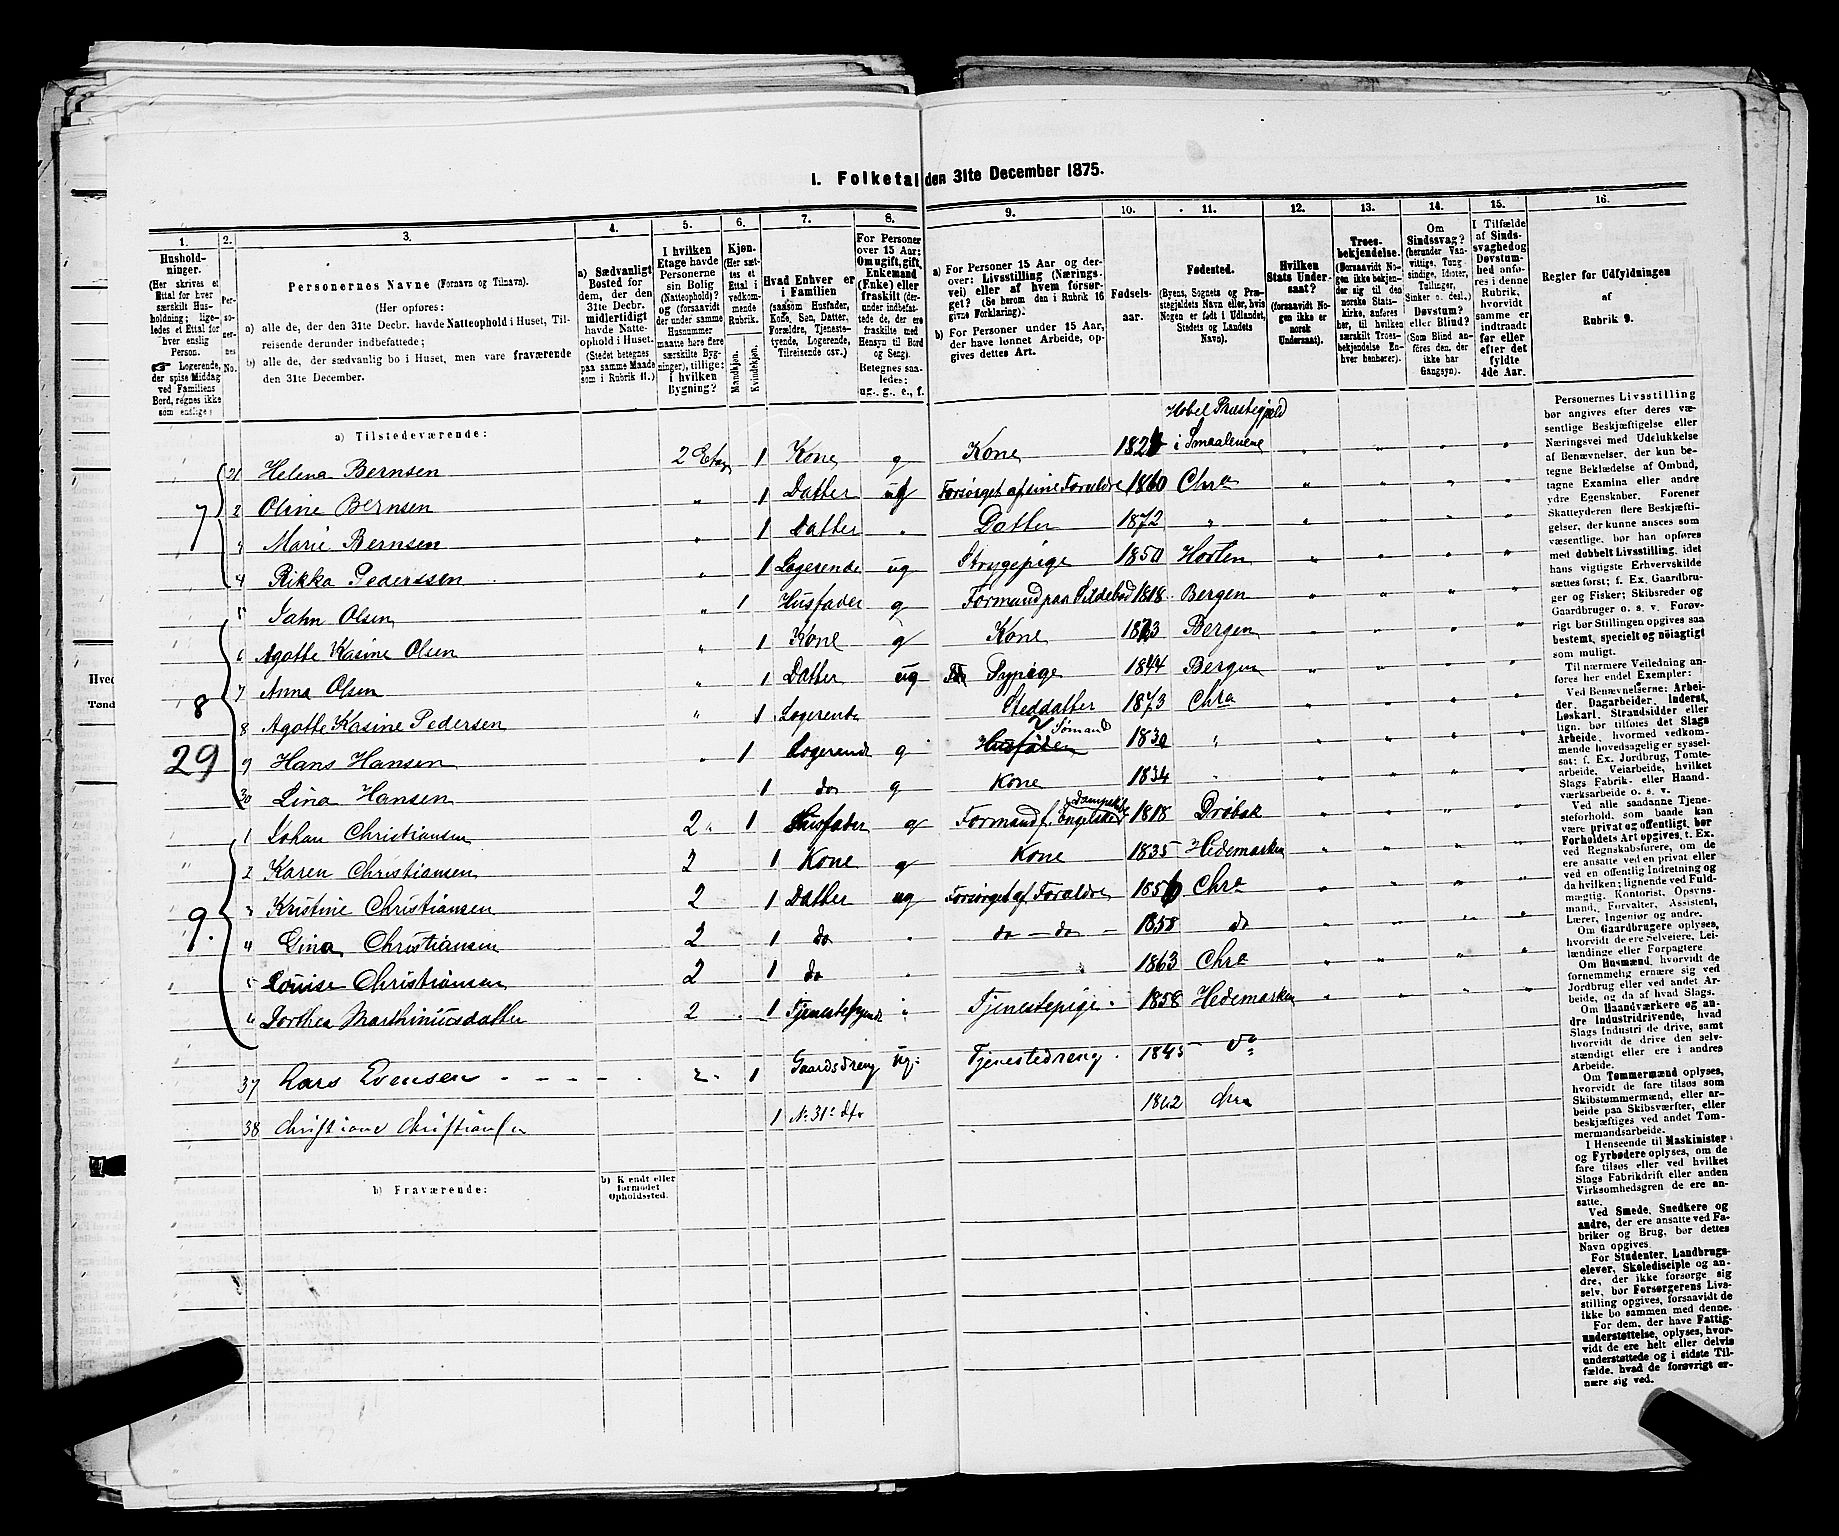 I. Folketal den 31te December 1875.
1. 2. 3. 4. 5. 6. 7. 8. 9. 10. 11. 12. 13. 14. 15. 16.
Hushold-
ninger.
(Her skrives et
Ettal for hver
særskilt Hus-
holdning; lige-
ledes et Ettal for
hver enslig
Person.
☛ Logerende,
der spise Middag
ved Familiens
Bord, regnes ikke
som enslige)
Per-
so-
ner-
nes
No.
Personernes Navne (Fornavn og Tilnavn).
(Her opføres:
a) alle de, der den 31te Decbr. havde Natteophold i Huset, Til-
reisende derunder indbefattede;
b) alle de, der sædvanlig bo i Huset, men vare fraværende
den 31te December.
a) Sædvanligt
Bosted for
dem, der den
31te Decbr.
midlertidigt
havde Natte-
ophold i Huset.
(Stedet betegnes
paa samme Maade
som i Rubrik 11.)
I hvilken
Etage havde
Personerne
sin Bolig
(Natteophold)?
og (forsaavidt
der under samme
Husnummer
maatte høre flere
særskilte Byg-
ninger), tillige:
i hvilken
Bygning?
Kjøn.
(Her sæt-
tes et
Ettal i
vedkom-
mende
Rubrik.
Mandkjøn.
Kvindekjøn.
Hvad Enhver er
i Familien
(saasom Husfader,
Kone, Søn, Datter,
Forældre, Tjeneste-
tyende, Logerende,
Tilreisende osv.)
For Personer
over 15 Aar:
Om ugift, gift,
Enkemand
(Enke) eller
fraskilt (der-
under indbefat-
tede de, der ere
fraskilte med
Hensyn til Bord
og Seng).
Betegnes saa-
ledes:
ug., g., e., f.
a) For Personer 15 Aar og der-
over: Livsstilling (Nærings-
vei) eller af hvem forsør-
get? (Se herom den i Rubrik 16
givne Forklaring).
b) For Personer under 15 Aar,
der have lønnet Arbeide, op-
gives dettes Art.
Fødsels-
aar.
Fødested.
(Byens, Sognets og Præ-
stegjeldets Navn eller, hvis
Nogen er født i Udlandet,
Stedets og Landets
Navn).
Hvilken
Stats Under-
saat?
(forsaavidt No-
gen ikke er
norsk
Undersaat).
Troes-
bekjendelse.
(Forsaavidt No-
gen ikke bekjen-
der sig til den
norske Stats-
kirke, anføres
her, til hvilken
særskilt Troes-
bekjendelse En-
hver henhører).
Om
Sindssvag?
(herunder Van-
vittige, Tung-
sindige, Idioter,
Tullinger,
Sinker o. desl.)
Døvstum?
eller Blind?
(Som Blind an-
føres den, der
ikke har
Gangsyn).
I Tilfælde
af Sinds-
svaghed og
Døvstum-
hed anfø-
res i denne
Rubrik,
hvorvidt
samme er
indtraadt
før eller
efter det
fyldte
4de Aar.
Regler for Udfyldningen
af
Rubrik 9.
a) Tilstedeværende:
21 Helena Bernsen 2 Etag 1 Kone g Kone 1824 Hobel Præstegjeld i Smaalenene
7 2 Oline Bernsen " 1 Datter ug Forsørget af sine Forældre 1860 Chra
Marie Bernsen " 1 Datter " Datter 1872 "
4 Rikka Pederssen " 1 Logerende ug Strygepige 1850 Horten
5 Jahn Olsen " 1 Husfader g Formand paa Sildebod 1818 Bergen
6 Agathe Kasine Olsen " 1 Kone g Kone Bergen
8 7 Anna Olsen " 1 Datter ug Sypige 1844 Bergen
8 Agathe Kasine Pedersen " 1 Logerende Steddatter 1873 Chra
29 9 Hans Hansen " 1 Logerende g Husfader Sømand 1830 "
30 Lina Hansen 1 do g Kone 1834 "
1 Johan Christiansen 2 " 1 Husfader g Formand f. 1818 Drøbak
2 Karen Christiansen 2 1 Kone g Kone 1835 Hedemarken
3 Kristine Christiansen 2 1 Datter ug Forsørget af Forældre 1856 Chra
9. 4 Gina Christiansen 2 1 do " do — do — 1858 do
5 Louise Christiansen 2 1 do " 1863 Chra
6 Dorthea Marthinusdatter 2 1 Tjenestetyende " Tjenestepige 1858 Hedemarken
37 Lars Evensen - - - - - 2 - 1 Gaardsdreng ug. Tjenestedreng. 1845 do
38 Christiane Christiansen 1 No 31s dtr 1862 Chra
b) Fraværende:
b) Kjendt eller
formodet
Opholdssted.
Personernes Livsstilling
bør angives efter deres væ-
sentlige Beskjæftigelse eller
Næringsvei med Udelukkelse
af Benævnelser, der kun be-
tegne Beklædelse af Ombud,
tagne Examina eller andre
ydre Egenskaber. Forener
Skatteyderen flere Beskjæfti-
gelser, der kunne ansces som
væsentlige, bør han opføres
med dobbelt Livsstilling, idet
hans vigtigste Erhvervskilde
sættes først; f. Ex. Gaardbru-
ger og Fisker; Skibsreder og
Gaardbruger o. s. v. Forøv-
rigt bør Stillingen opgives saa
bestemt, specielt og nøiagtigt
som muligt.
Til nærmere Veiledning an-
føres her endel Exempler:
Ved Benævnelserne: Arbei-
der, Dagarbeider, Inderst,
Løskarl, Strandsidder eller
lign. bør tilføies det Slags
Arbeide, hvormed vedkom-
mende hovedsagelig er syssel-
sat; f. Ex. Jordbrug, Tomte-
arbeide, Veiarbeide, hvilket
Slags Fabrik- eller Haand-
værksarbeide o. s. v.
Ved alle saadanne Tjene-
steforhold, som baade kan
være privat og offentligt, bør
Forholdets Art opgives, t. Ex.
ved Regnskabsførere, om de
ere ansatte ved en privat eller
ved en offentlig Indretning og
da hvilken; lignende ved Fuld-
mægtig, Kontorist, Opsyns-
mand, Forvalter, Assistent,
Lærer, Ingeniør og andre.
Om Gaardbrugere oplyses,
hvorvidt de ere Selveiere, Lei-
lændinge eller Forpagtere.
Om Husmænd, hvorvidt de
fornemmelig ernære sig ved
Jordbrug eller ved andet Ar-
beide, og da af hvad Slags.
Om Haandværkere og an-
dre Industridrivende, hvad
Slags Industri de drive, samt
hvorvidt de drive den selv-
stændigt eller ere i andres
Arbeide.
Om Tømmermænd oplyses,
hvorvidt de fare tilsøs som
Skibstømmermænd, eller ar-
beide paa Skibsværfter, eller
beskjæftiges ved andet Tøm-
mermandsarbeide.
I Henseende til Maskinister
og Fyrbødere oplyses, om de
fare tilsøs eller ved hvilket
Slags Fabrikdrift eller anden
Virksomhedsgren de ere an-
satte.
Ved Smede, Snedkere og
andre, der ere ansatte ved Fa-
briker og Brug, bør dettes
Navn opgives.
For Studenter, Landbrugs-
elever, Skoledisciple og an-
dre, der ikke forsørge sig
selv, bør Forsørgerens Livs-
stilling opgives, forsaavidt de
ikke bo sammen med denne.
For dem, der have Fattig-
understøttelse, oplyses, hvor-
vidt de ere helt eller delvis
understøttede og i sidste Til-
fælde, hvad de forøvrigt er-
nære sig ved.